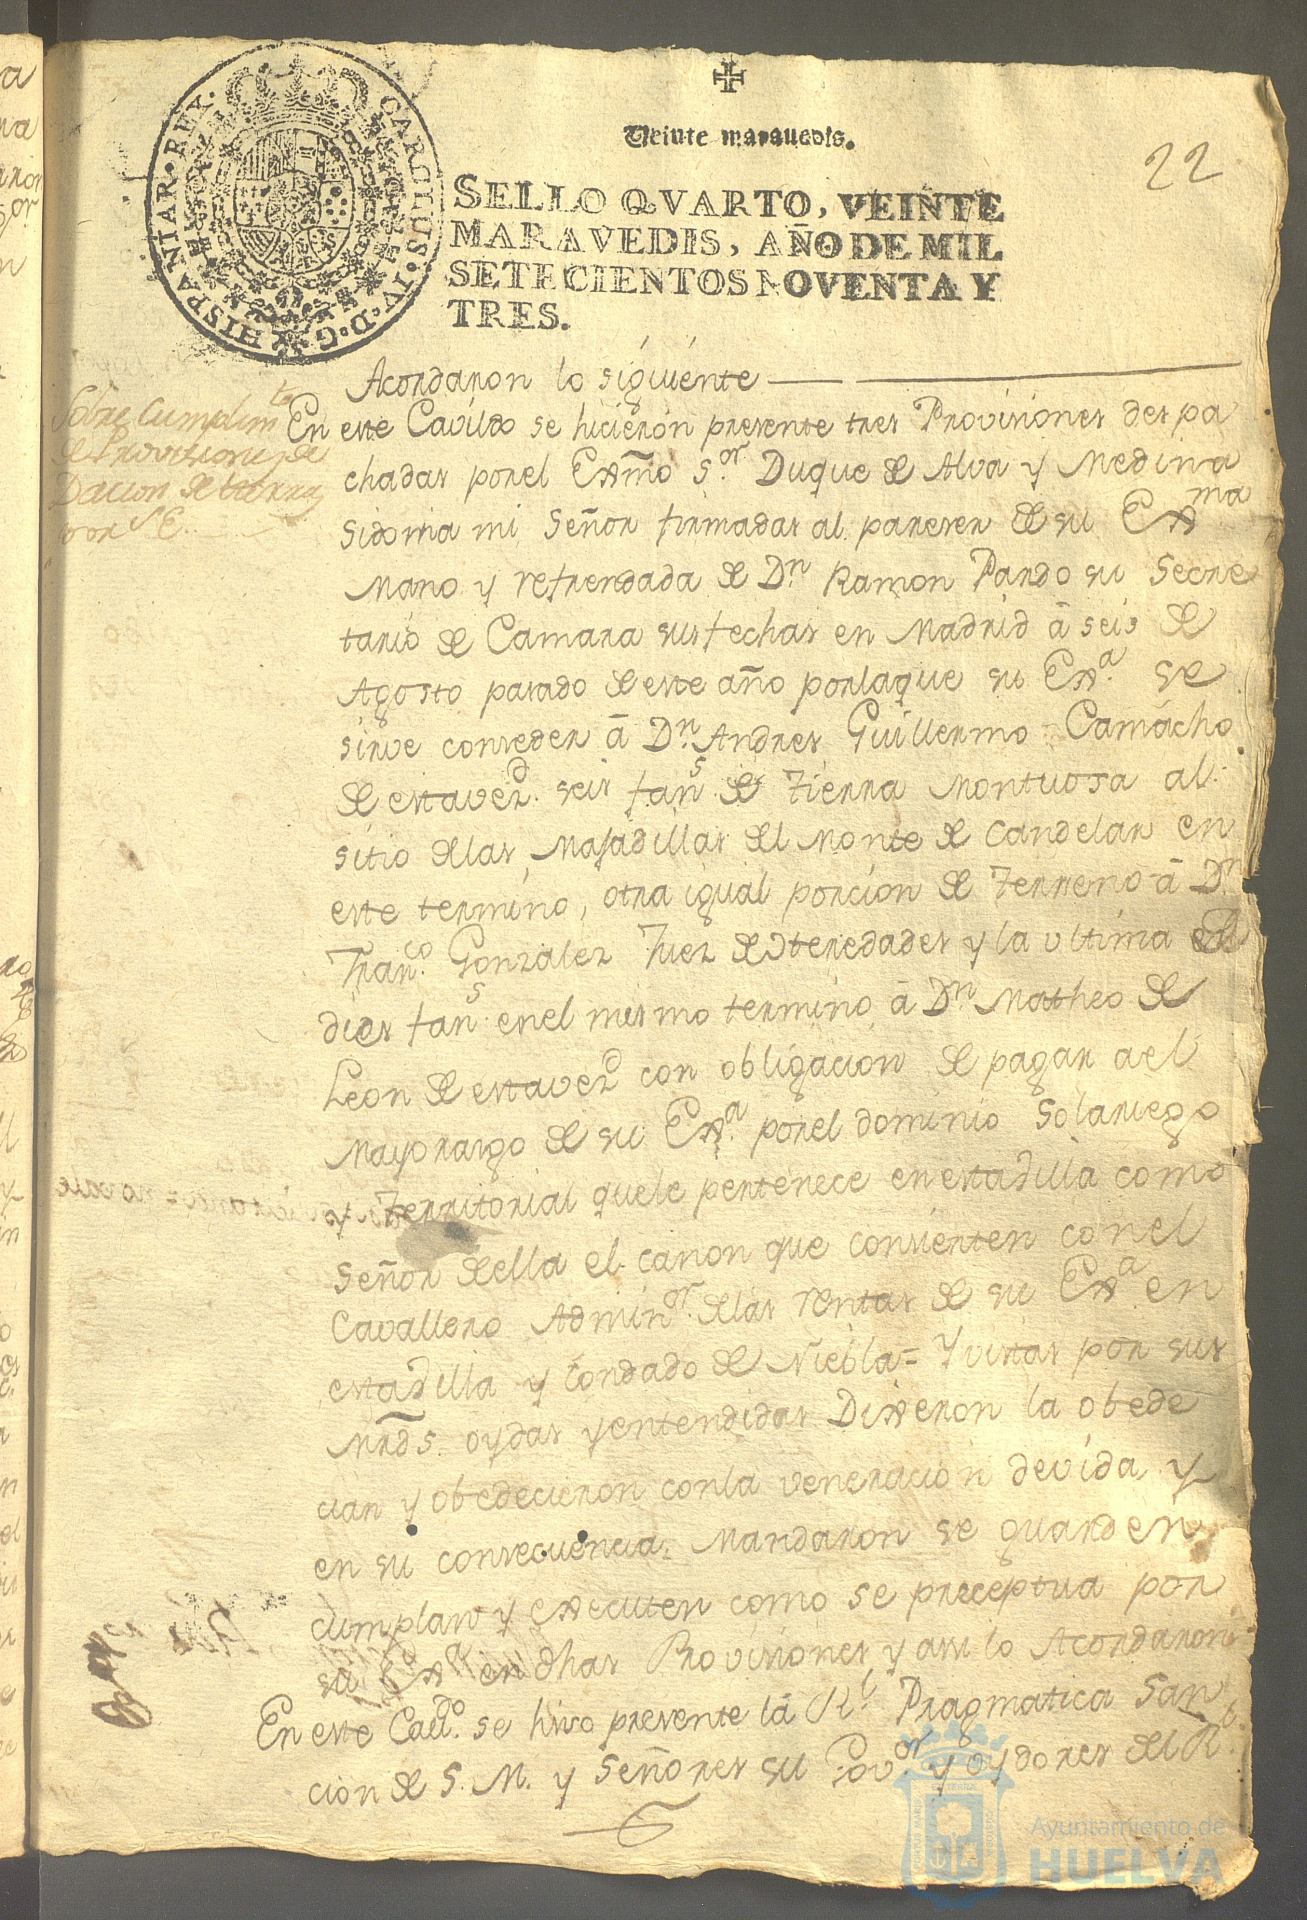 Veinte maravedis.
22
CAROLUS·IV·D·G·HISPANIAR·REX·
SELLO QVARTO, VEINTE
MARAVEDIS, AÑO DE MIL
SETECIENTOS NOVENTA Y
TRES.
Acordaron lo siguiente
Sobre Cumplim.to
de Provisiones de
Dacion de tierras
por S.E.
En este Cavildo se hicieron presente tres Provisiones despa
chadas por el Exmo S.or Duque de Alva y Medina
Sidonia mi Señor firmadas al pareser de su Exma
Mano y refrendada de D.n Ramon Pardo su Secre
tario de Camara sus fechas en Madrid â seis de
Agosto pasado de este año por la que su Ex.a se
sirve conseder â D.n Andres Guillermo Camacho
de esta vez.d seis fan.s de Tierra Montuosa al
sitio de las Majadillas del Monte de Candelar en
este termino, otra igual porcion de Terreno â D.n
Fran.co Gonzalez Juez de Heredades y la ultima de
dies fan.s en el mismo termino â D.n Matheo de
Leon de esta vez.d con obligacion de pagar a el
Mayorasgo de su Ex.a por el dominio Solariego
y Territorial que le pertenece en esta dilla como
Señor de ella el canon que consierten con el
Cavallero Admin.or de las rentas de su Ex.a en
esta dilla y Condado de Niebla = Y vistas por sus
Mrds. oydas y entendidas Dixeron la obede
cian y obedecieron con la veneracion devida y
en su consecuencia Mandaron se guarden
cumplan y executen como se preceptua por
su Ex.a en dhas Provisiones y assi lo Acordaron
En este Cav.do se hiso presente la R.l Pragmatica San
cion de S. M. y Señores su Gov.or y oydores del R.l
Ayuntamiento de
HUELVA